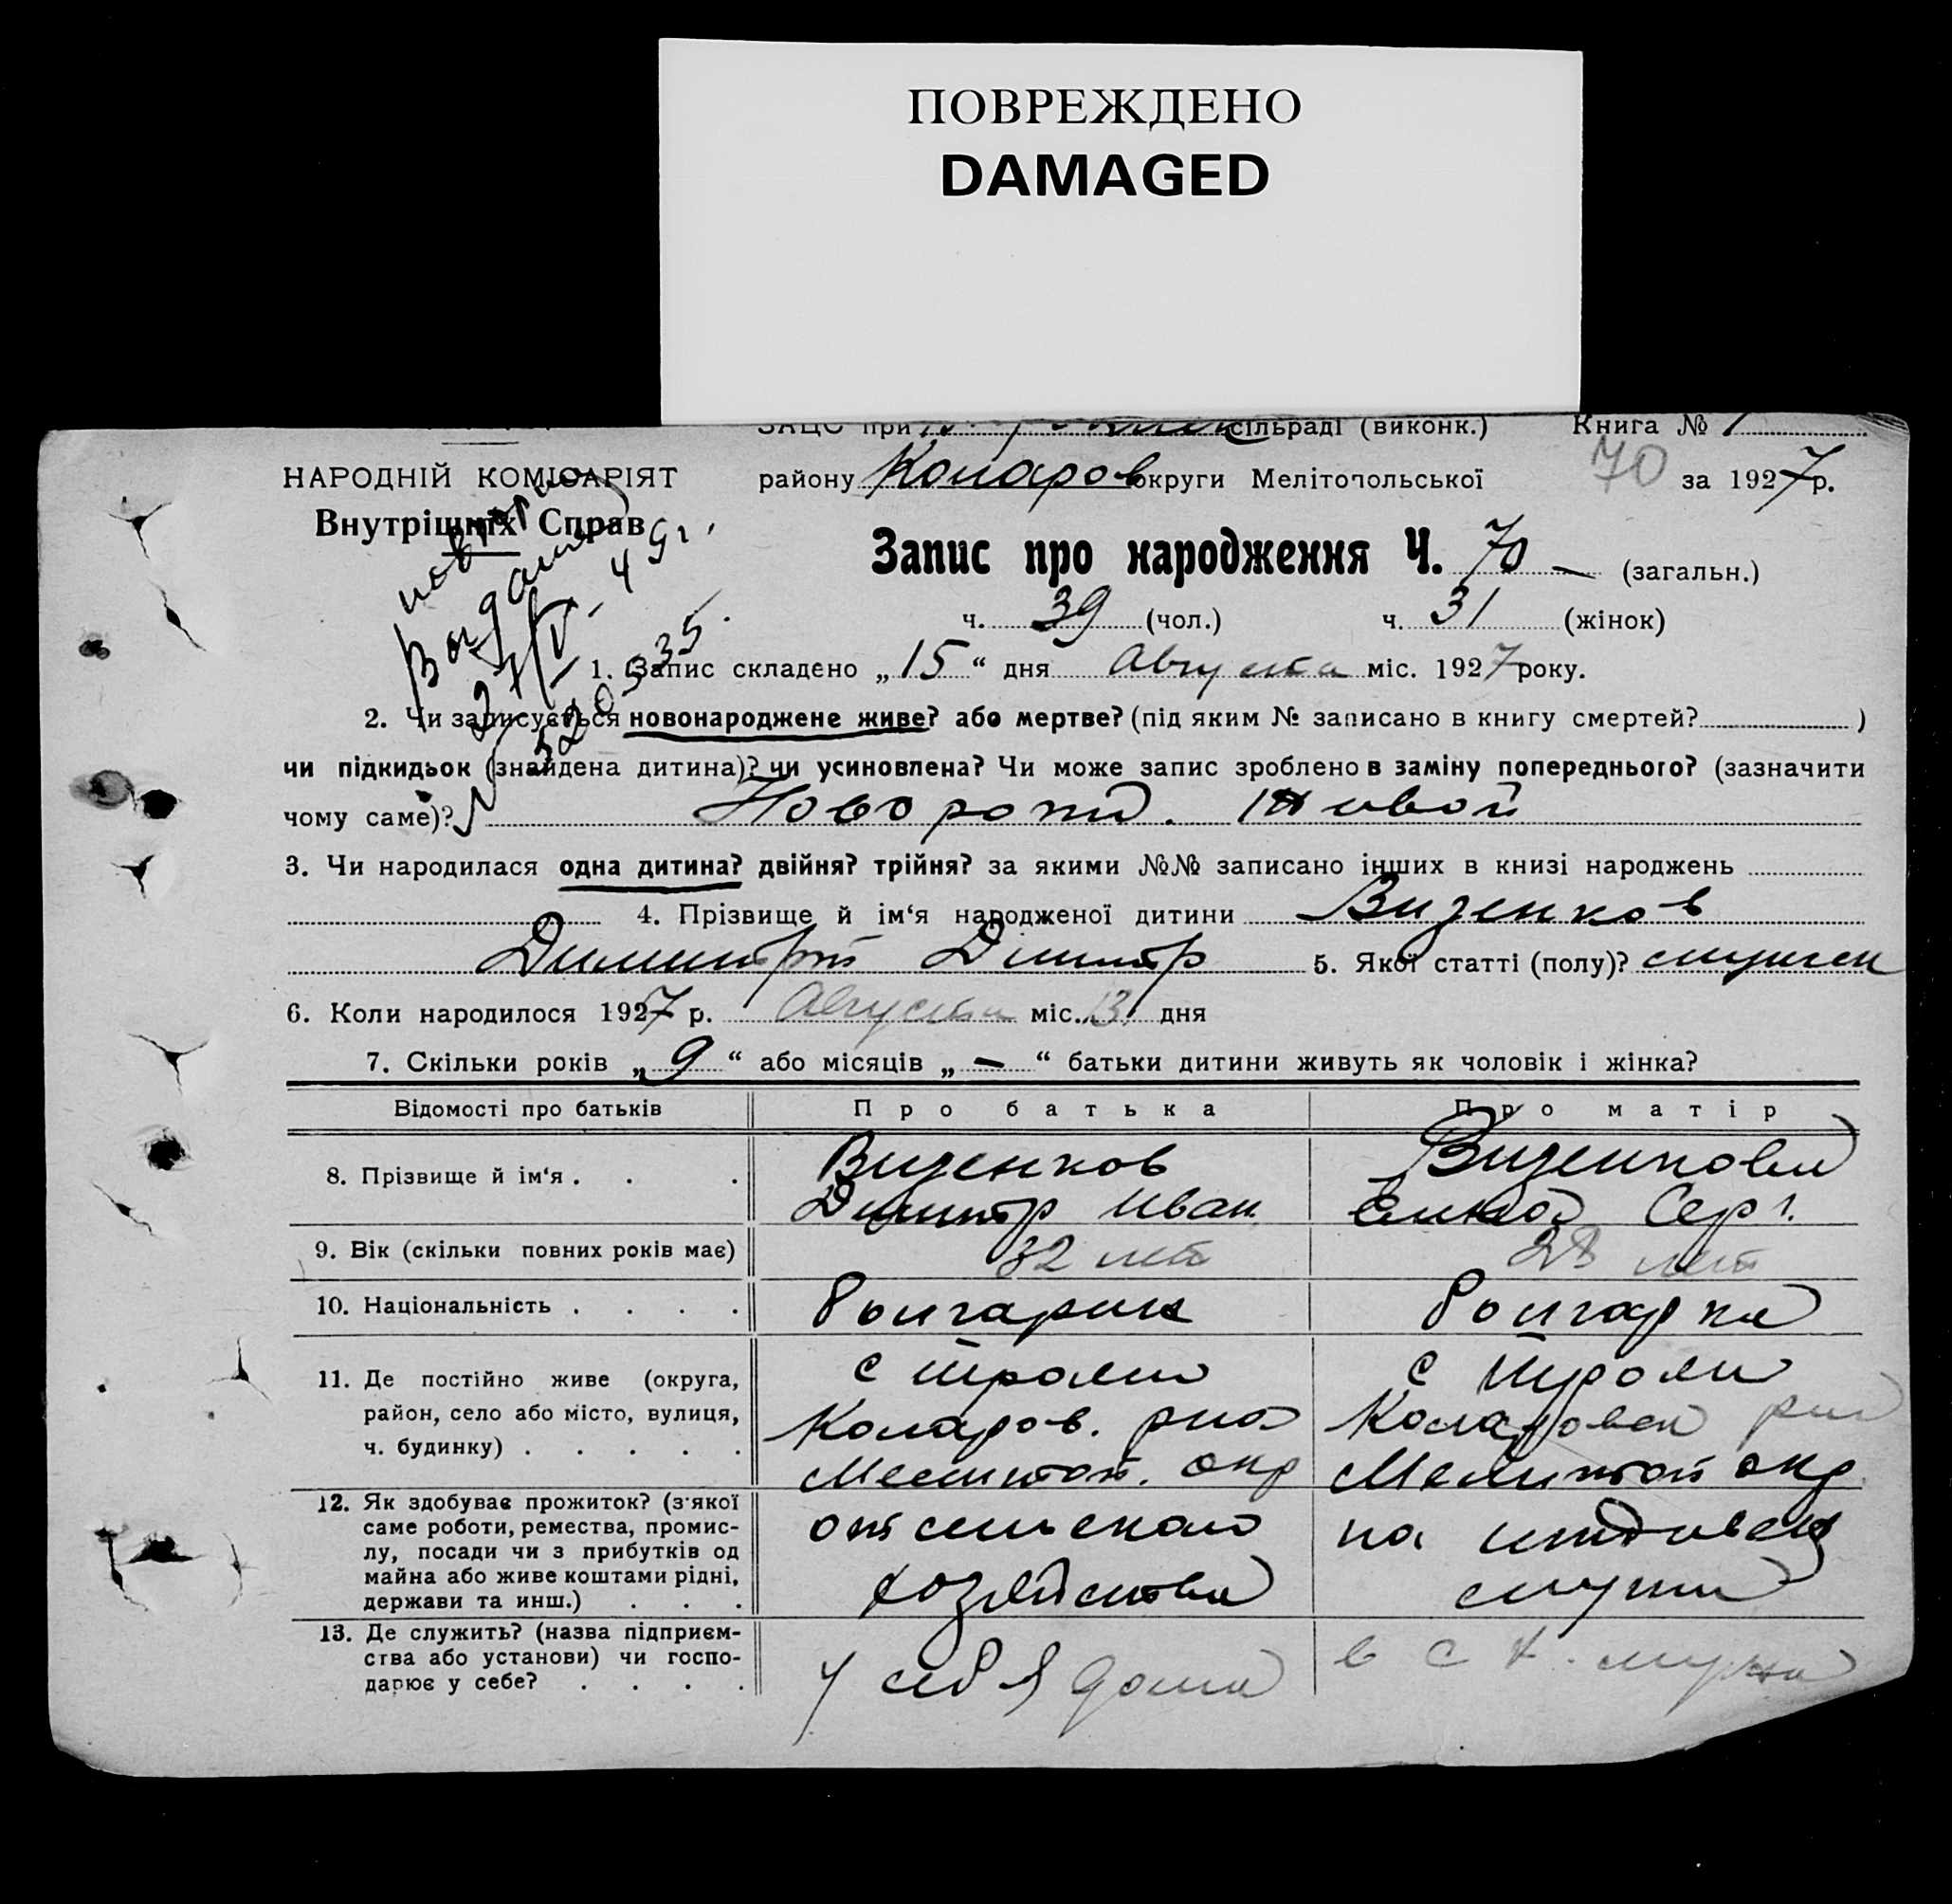 ПОВРЕЖДЕНО
DAMAGED
ЗАЦС при сільраді (виконк.) Книга № 1
НАРОДНІЙ КОМІСАРІЯТ
Внутрішніх Справ
району Коларов округи Мелітопольської 70 за 1927 р.
Запис про народження Ч. 70 — (загальн.)
ч. 39 (чол.) ч. 31 (жінок)
повторно
Выдано
49 г.
1. Запис складено „15“ дня Августа міс. 1927 року.
2. Чи записується новонароджене живе? або мертве? (під яким № записано в книгу смертей? )
чи підкидьок (знайдена дитина)? чи усиновлена? Чи може запис зроблено в заміну попереднього? (зазначити
чому саме)? Новорожд. живой
3. Чи народилася одна дитина? двійня? трійня? за якими №№ записано інших в книзі народжень
4. Прізвище й ім‘я народженої дитини Визенков
Димитрий Димитр 5. Якої статті (полу)? мужск
6. Коли народилося 1927 р. Августа міс. 13 дня
7. Скільки років „9“ або місяців „—“ батьки дитини живуть як чоловік і жінка?
Відомості про батьків Про батька Про матір
8. Прізвище й ім‘я . . . Визенков Визенкова
Димитр Иван Серг.
9. Вік (скільки повних років має) 32 лет 28 лет
10. Національність . . . . болгарин болгарка
11. Де постійно живе (округа, район, село або місто, вулиця, ч. будинку) . . . . . с Трояны с Трояны
Коларов. рна Коларовск рна
Мелитоп. окр Мелитоп окр
12. Як здобуває прожиток? (з якої саме роботи, ремества, промислу, посади чи з прибутків од майна або живе коштами рідні, держави та инш.) . . . от сельского на иждивен
хозяйства мужа
13. Де служить? (назва підприємства або установи) чи господарює у себе? . . . . у себя дома в с х. мужа